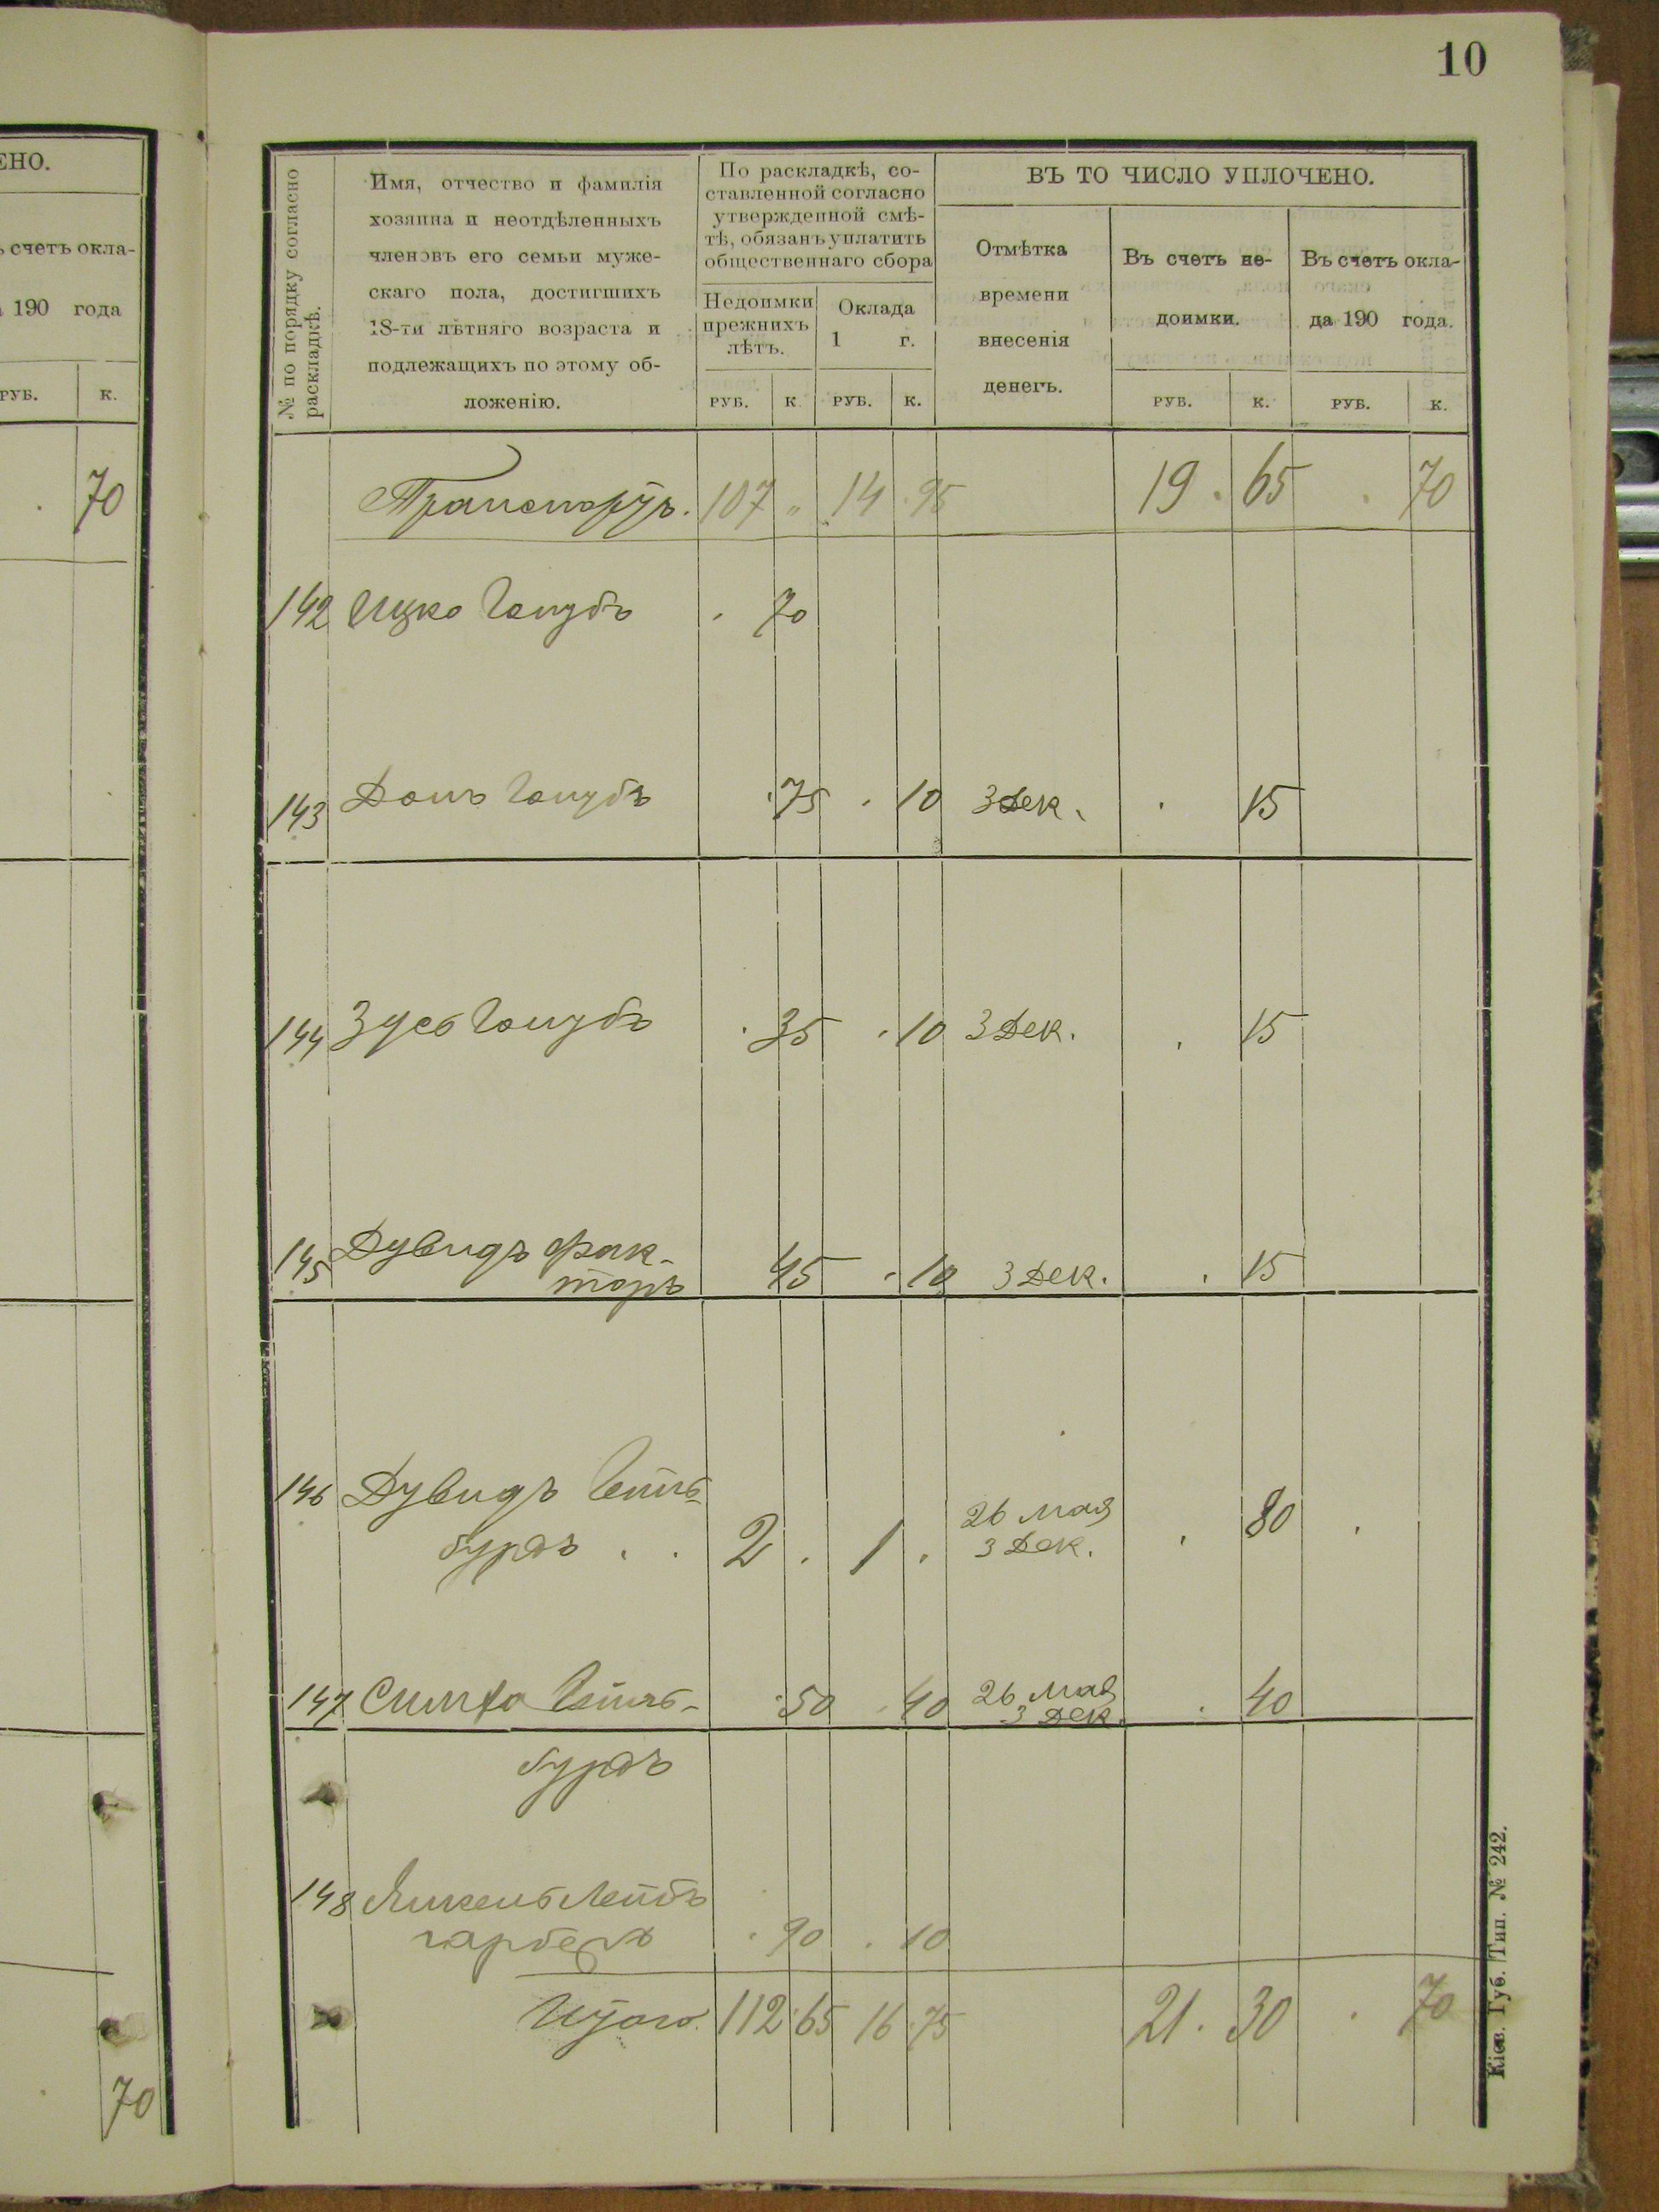 10
ЕНО.
ъ счетъ окла-
а 190 года
РУБ. К.
. 70
70
№ по порядку согласно
раскладкѣ.
Имя, отчество и фамилія
хозяина и неотдѣленныхъ
членовъ его семьи муже-
скаго пола, достигшихъ
18-ти лѣтняго возраста и
подлежащихъ по этому об-
ложенію.
По раскладкѣ, со-
ставленной согласно
утвержденной смѣ-
тѣ, обязанъ уплатить
общественнаго сбора
Недоимки
прежнихъ
лѣтъ.
Оклада
1 г.
РУБ. К. РУБ. К.
ВЪ ТО ЧИСЛО УПЛОЧЕНО.
Отмѣтка
времени
внесенія
денегъ.
Въ счетъ не-
доимки.
РУБ. К.
Въ счетъ окла-
да 190 года.
РУБ. К.
Транспортъ. 107 „ 14 . 95 19 . 65 . 70
142 Ицко Голубъ . 70
143 Голубъ . 75 . 10 3 Дек. . 15
144 Зусь Голубъ . 35 . 10 3 Дек. . 15
145 Дувидъ Фак-
торъ 45 . 10 3 Дек. . 15
146 Дувидъ
бурдъ . . 2 . 1 . 26 Мая
3 Дек. . 80 .
147 Симха . 50 . 40 26 Мая
3 Дек. . 40
бурдъ
148 Лейб
гарберъ . 90 . 10
Итого. 112 65 16 . 75 21 . 30 . 70
Кіев. Губ. Тип. № 242.